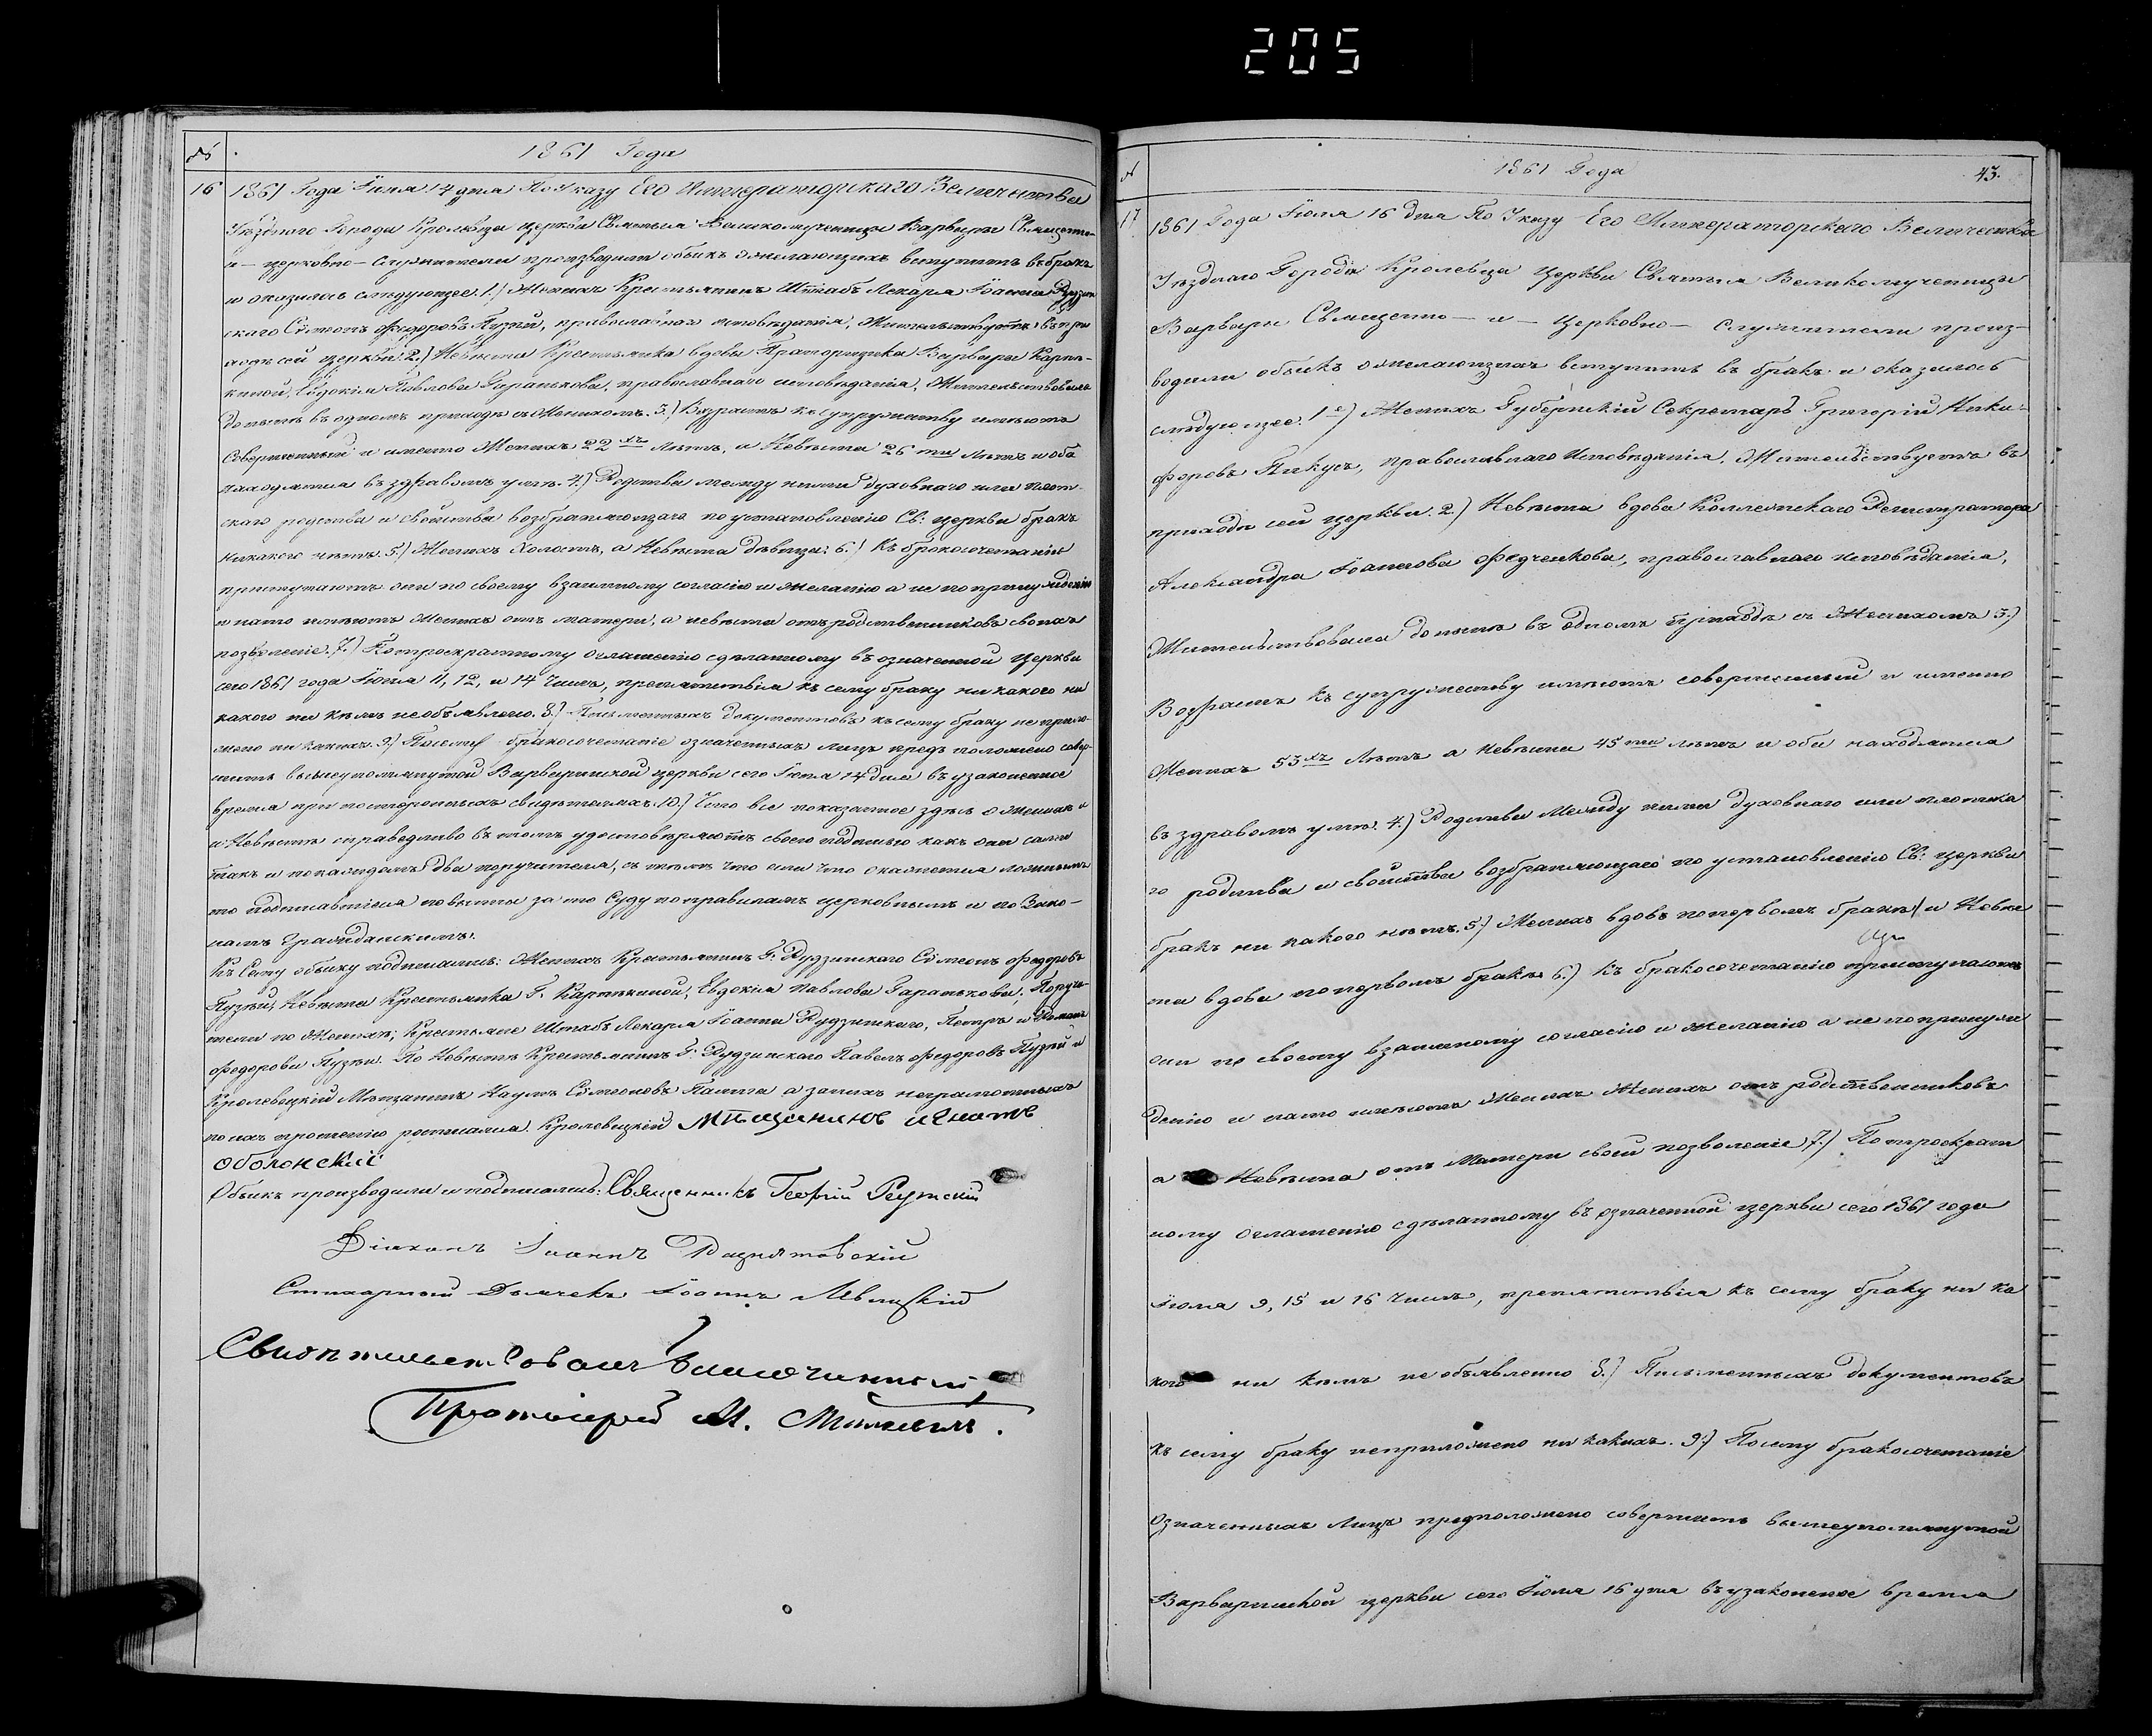 205
№ 1861 Года
16 1861 Года Іюня 14 дня По Указу Его Императорскаго Величества
Уѣзднаго Города Кролевца церкви Святыя Великомученицы Варвары Священно-
и – церковно – служители производили обыскъ о желающихъ вступить въ бракъ
и оказалось слѣдующее. 1.) Женихъ Крестьянинъ Штабъ Лекаря Іоанна Рудзин
скаго Сѵмеонъ Федоровъ Пузый, православнаго исповѣданія, Жительствуетъ въ при
ходѣ сей церкви. 2.) Невѣста Крестьянка вдовы Прапорщика Варвары Карпѣ-
киной, Евдокія Павлова Гаранькова, православнаго исповѣданія, Жительствовала
до нынѣ въ одномъ приходѣ съ Женихомъ. 3.) Возрастъ къ супружеству имѣютъ
Совершенный и именно Женихъ 22хъ Лѣтъ, а Невѣста 26ти Лѣтъ и оба
находятся въ здравомъ умѣ. 4.) Родства между ними духовнаго или плот-
скаго родства и свойства возбраняющаго по установленію Св: церкви бракъ
никакого нѣтъ. 5.) Женихъ Холостъ, а Невѣста дѣвица. 6.) Къ бракосочетанію
приступаютъ они по своему взаимному согласію и желанію а не по принужденію
и на то имѣютъ Женихъ отъ матери, а невѣста отъ родственниковъ своихъ
позволеніе. 7.) По троекратному оглашенію сдѣланному въ означенной церкви
сего 1861 года Іюня 11, 12, и 14 Числъ, препятствія къ сему браку ни какого ни
какого ни кѣмъ необъявлено. 8.) Письменныхъ документовъ къ сему браку не прило-
жено ни какихъ. 9.) Посему бракосочетаніе означенныхъ лицъ предположено совер-
шить вышеупомянутой Варваринской церкви сего Іюня 14 дня въ узаконенное
время при постороннихъ свидѣтеляхъ. 10.) Что все показанное здѣсь о Женихѣ и
и Невѣстѣ справедливо въ томъ удостовѣряютъ своею подписью какъ они сами
такъ и по каждомъ два поручителя, съ тѣмъ что если что окажется ложнымъ
то подписавшіеся повинны за то Суду по правиламъ церковнымъ и по Зако-
намъ Гражданскимъ.
Къ Сему обыску подписались: Женихъ Крестьянинъ Г. Рудзинскаго Сѵмеонъ Федоровъ
Пузый, Невѣста Крестьянка Г. Карпѣкиной, Евдокія Павлова Гаранькова. Поручи-
тели по Женихѣ; Крестьяне Штабъ Лекаря Іоанна Рудзинскаго, Петръ и Романъ
Федоровы Пузыи. По Невѣстѣ Крестьянинъ Г. Рудзинскаго Павелъ Федоровъ Пузый и
Кролевецкій Мѣщанинъ Наумъ Сѵмеоновъ а за нихъ неграмотныхъ
по ихъ прошенію росписался. Кролевецкій Мѣщанинъ Игнатъ
Оболонскій
Обыскъ производили и подписались: Священникъ Георгій Реутскій
Діаконъ Іоаннъ
Стихарный Дьячекъ Іоаннъ
Свидѣтельствовалъ Благочинный
Протоіерей М.
№ 1861 Года 43.
17 1861 Года Іюля 16 дня По Указу Его Императорскаго Величества
Уѣзднаго Города Кролевца Церкви Святыя Великомученицы
Варвары Священно – и – Церковно – служители произ-
водили обыскъ о желающихъ вступить въ бракъ и оказалось
слѣдующее. 1е) Женихъ Губернскій Секретарь Григорій Ники-
форовъ Пикусъ, православнаго Исповѣданія, Жительствуетъ въ
приходѣ сей церкви. 2.) Невѣста вдова Коллежскаго Регистратора
Александра Іоаннова Федченкова, православнаго исповѣданія,
Жительствовала до нынѣ въ одномъ приходѣ съ Женихомъ 3.)
Возрастъ къ супружеству имѣютъ совершенный и именно
Женихъ 53хъ Лѣтъ а Невѣста 45ти лѣтъ и оба находятся
въ здравомъ умѣ. 4.) Родства Между ними духовнаго или плотска
го родства и свойства возбраняющаго по установленію Св: церкви
бракъ ни какого нѣтъ. 5.) Женихъ вдовъ по первомъ бракѣ и Невѣ
ста вдова по первомъ бракѣ 6.) Къ бракосочетанію приступаютъ
они по своему взаимному согласію и желанію а не по принуж
денію и на то имѣютъ Женихъ Женихъ отъ родственниковъ
а Невѣста отъ Матери своей позволеніе 7.) По троекрат
ному Оглашенію сдѣланному въ означенной церкви сего 1861 года
Іюля 9, 15 и 16 Числъ, препятствія къ сему браку ни ка
кого ни кѣмъ не объявлено 8.) Письменныхъ документовъ
къ сему браку неприложено ни какихъ. 9.) Посему бракосочетаніе
Означенныхъ Лицъ предположено совершить вышеупомянутой
Варваринской церкви сего Іюля 16 дня въ узаконеное время